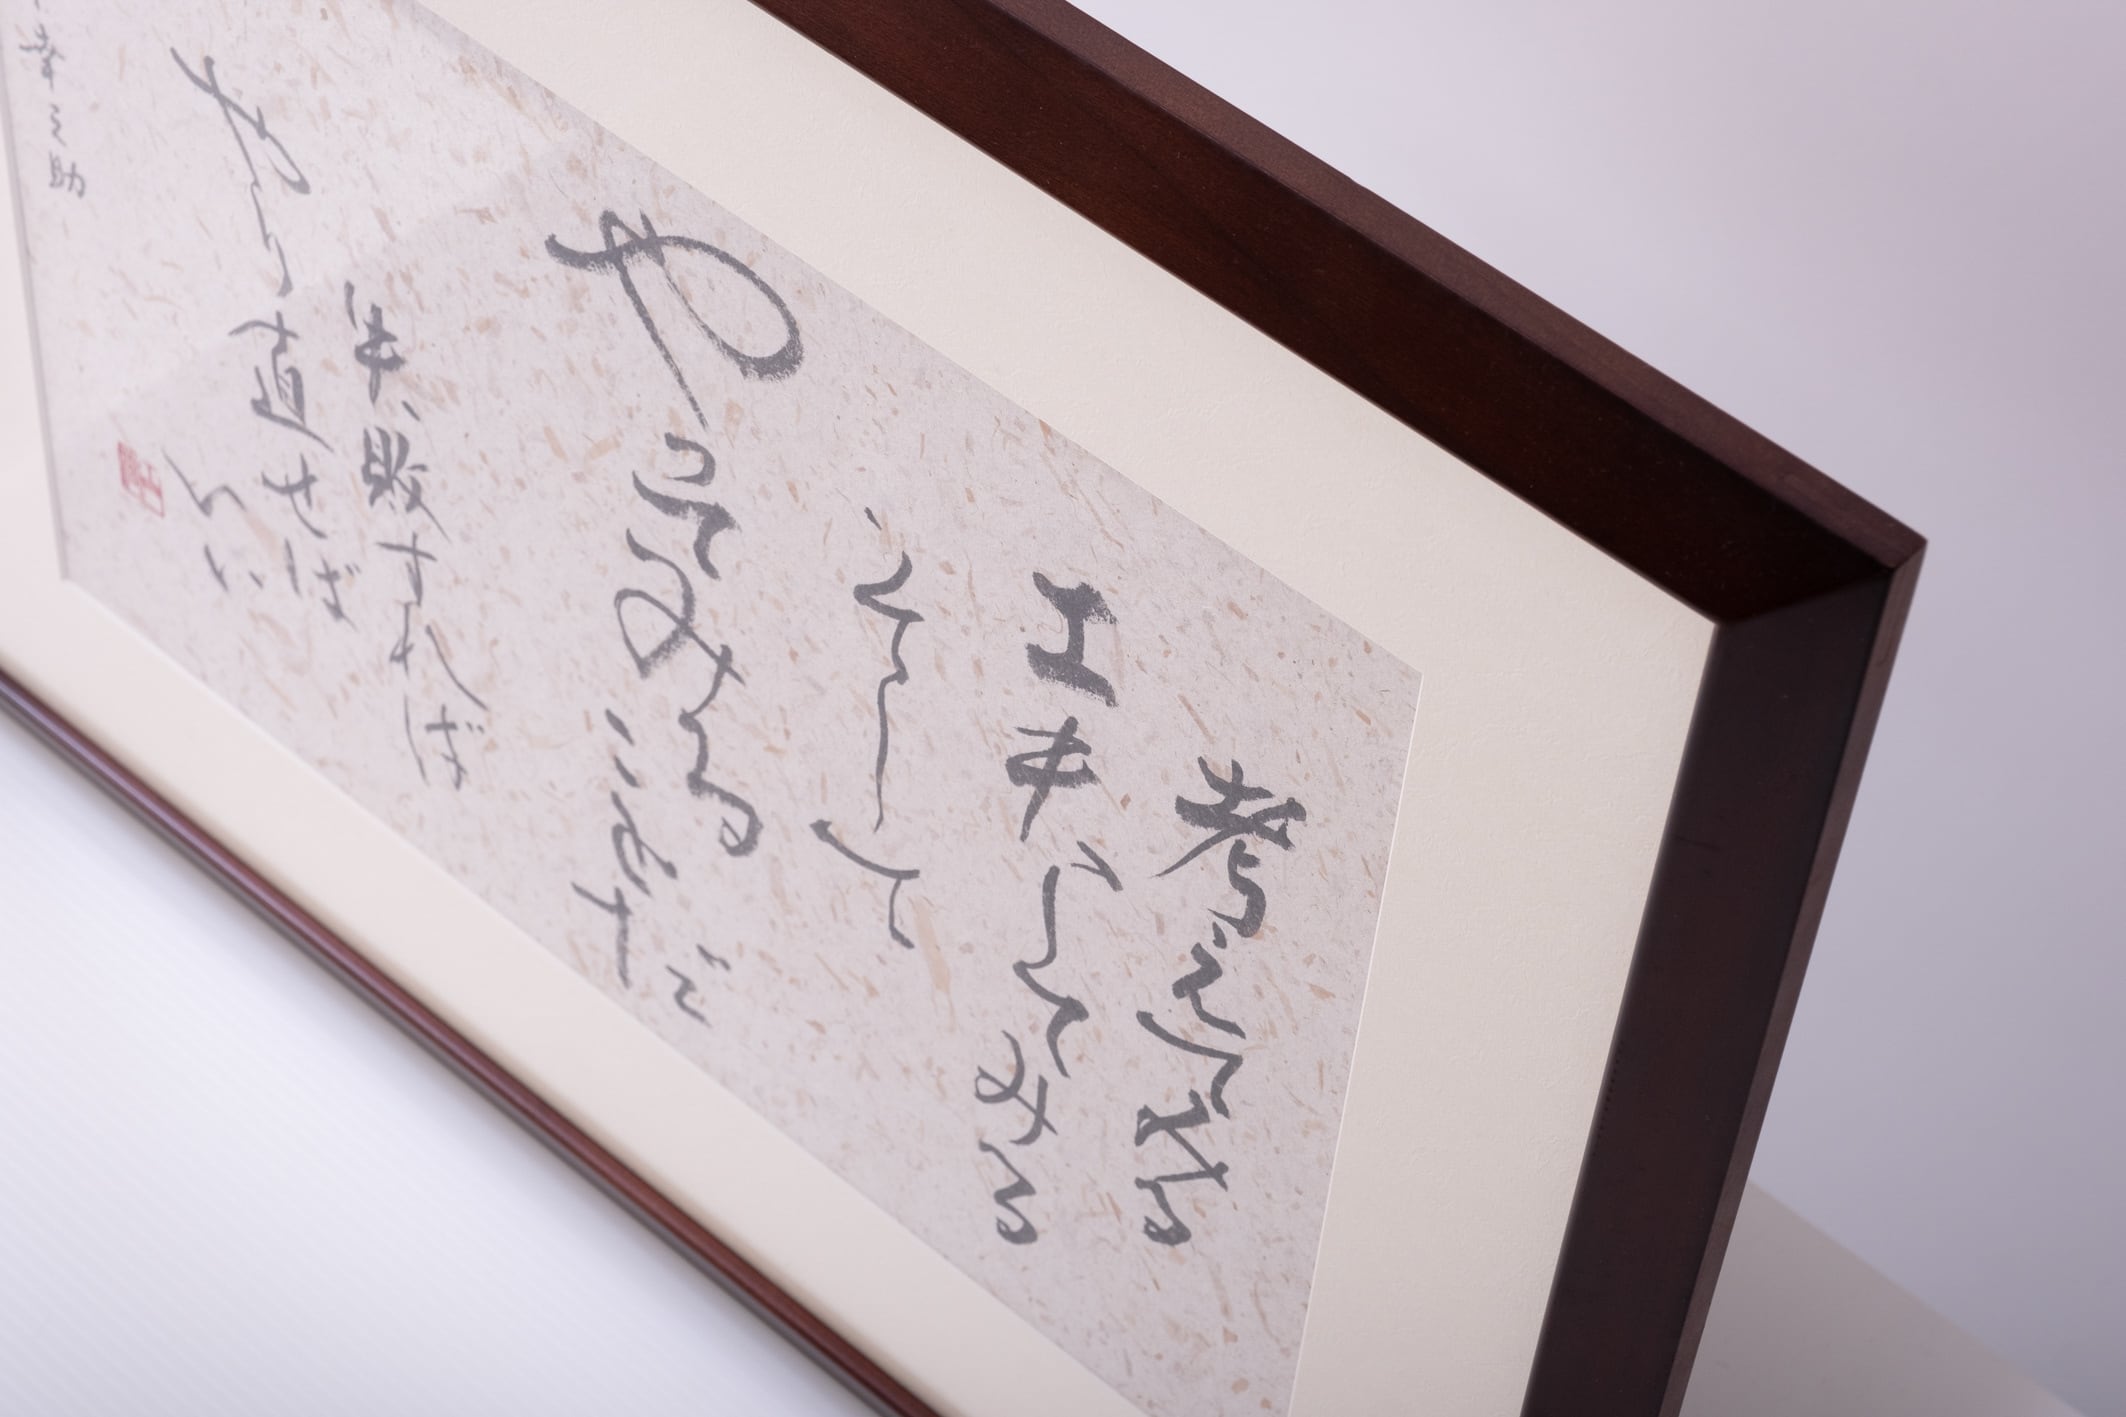 考えてみる
工夫してみる
そして
やってみる
ことだ
失敗すれば
やり直せば
いい
幸之助